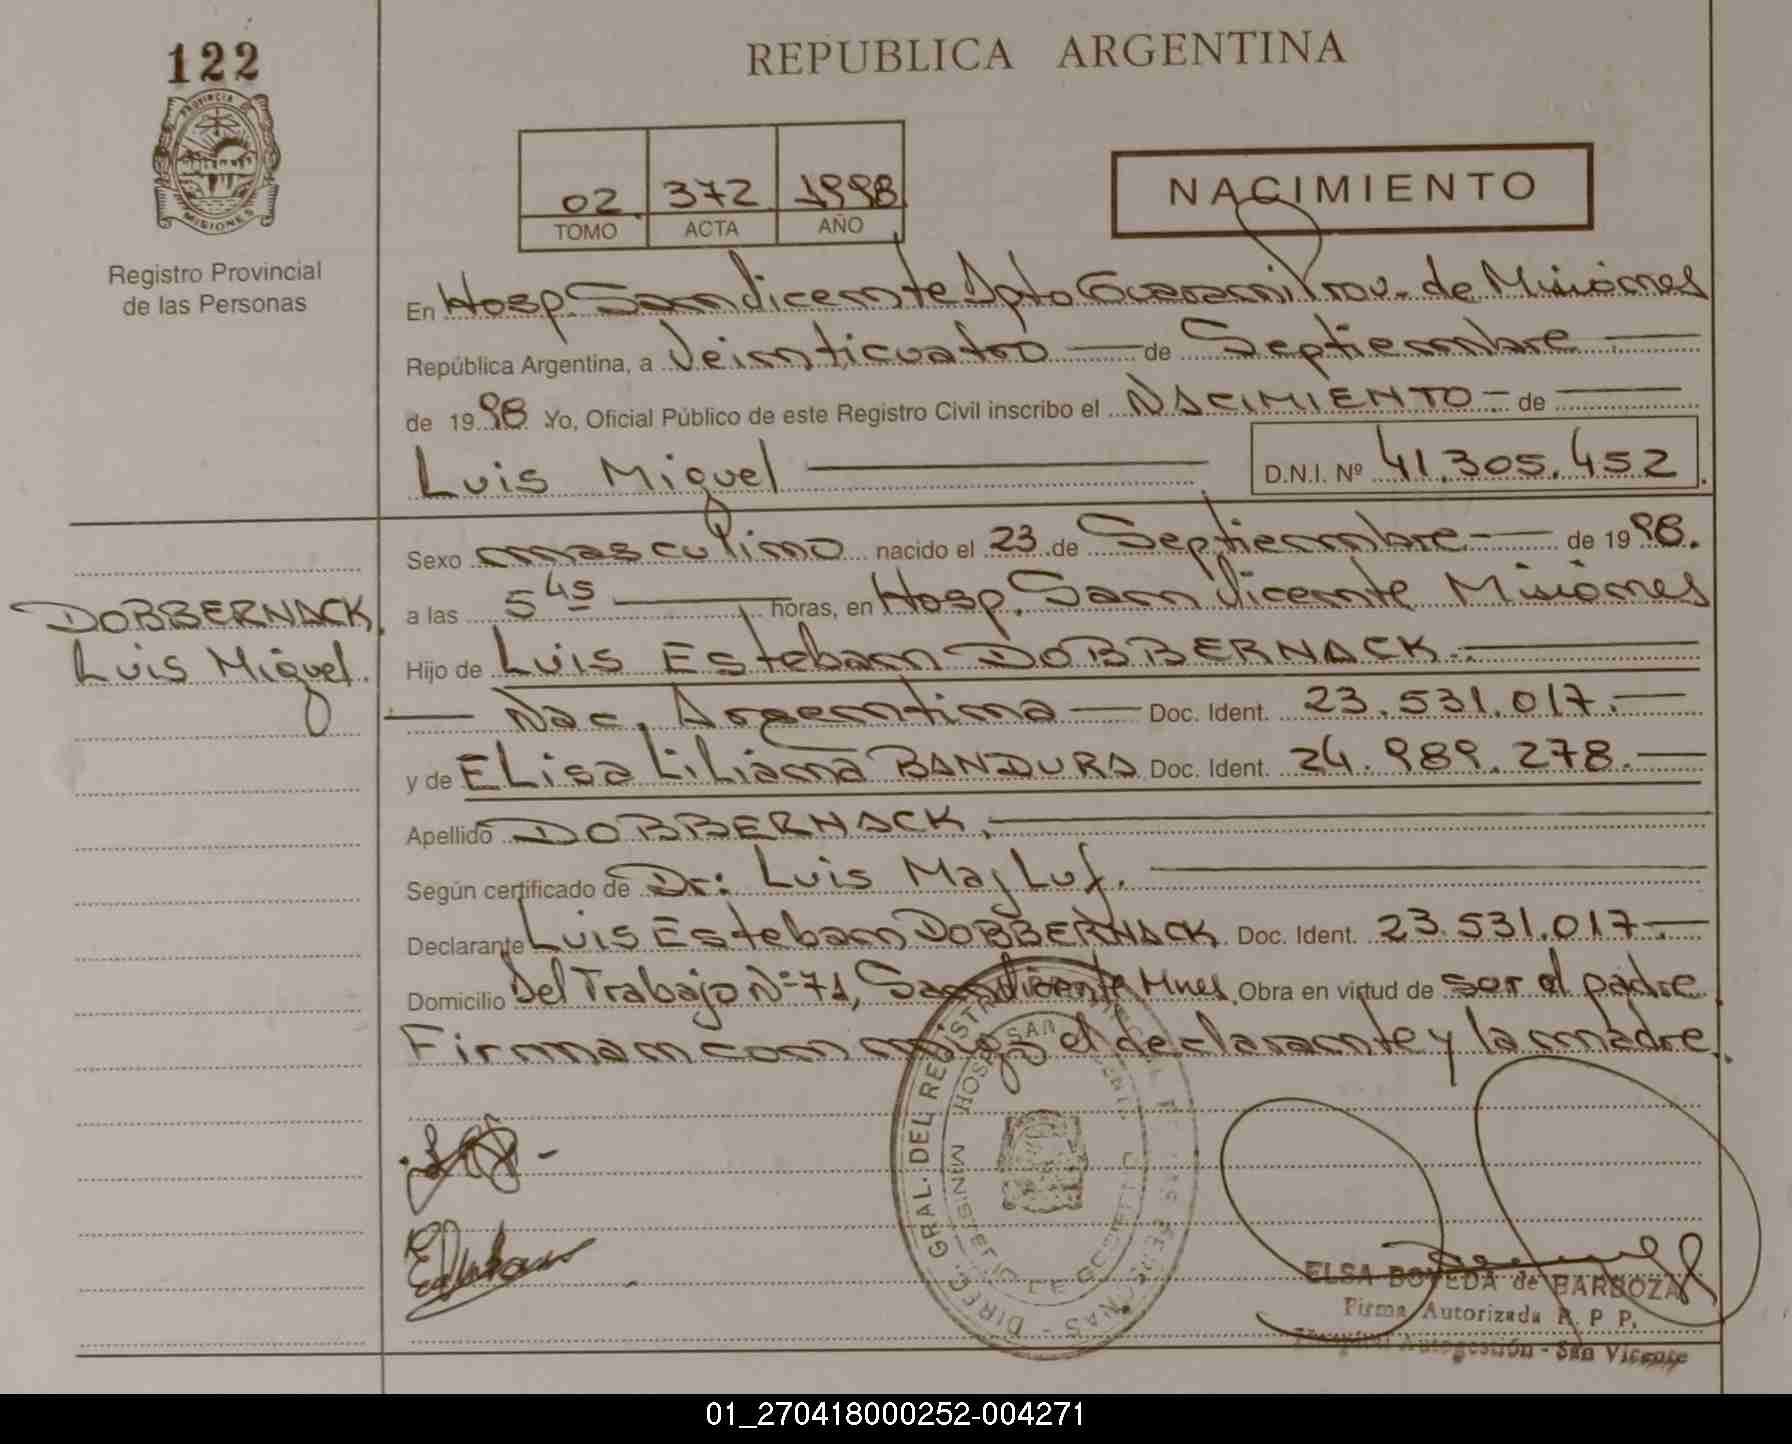 122
PROVINCIA
MISIONES
Registro Provincial
de las Personas
REPUBLICA ARGENTINA
02 372 1998
TOMO ACTA AÑO
NACIMIENTO
En Hosp. San Vicente Dpto Guarani Prov. de Misiones
República Argentina, a Veinticuatro de Septiembre
de 1998 Yo, Oficial Público de este Registro Civil inscribo el NACIMIENTO de
Luis Miguel D.N.I. Nº 41.305.452
DOBBERNACK
Luis Miguel.
Sexo masculino nacido el 23 de Septiembre de 1998.
a las 5 45 horas, en Hosp. San Vicente Misiones
Hijo de Luis Esteban DOBBERNACK.
Nac. Argentina Doc. Ident. 23.531.017.
y de ELisa LiLiana BANDURA Doc. Ident. 24.989.278.
Apellido DOBBERNACK.
Según certificado de Dr: Luis MajLuf.
Declarante Luis Esteban DOBBERNACK Doc. Ident. 23.531.017.
Domicilio Del Trabajo Nº 71, San Vicente Mnes. Obra en virtud de ser el padre
Firman conmigo el declarante y la madre.
DIREC. GRAL. DEL REGISTRO
HOSP. SAN
MINISTERIO DE GOBIERNO
ELSA BOVEDA de BARBOZA
Firma Autorizada R. P. P.
Hospital Autogestión - San Vicente
01_270418000252-004271